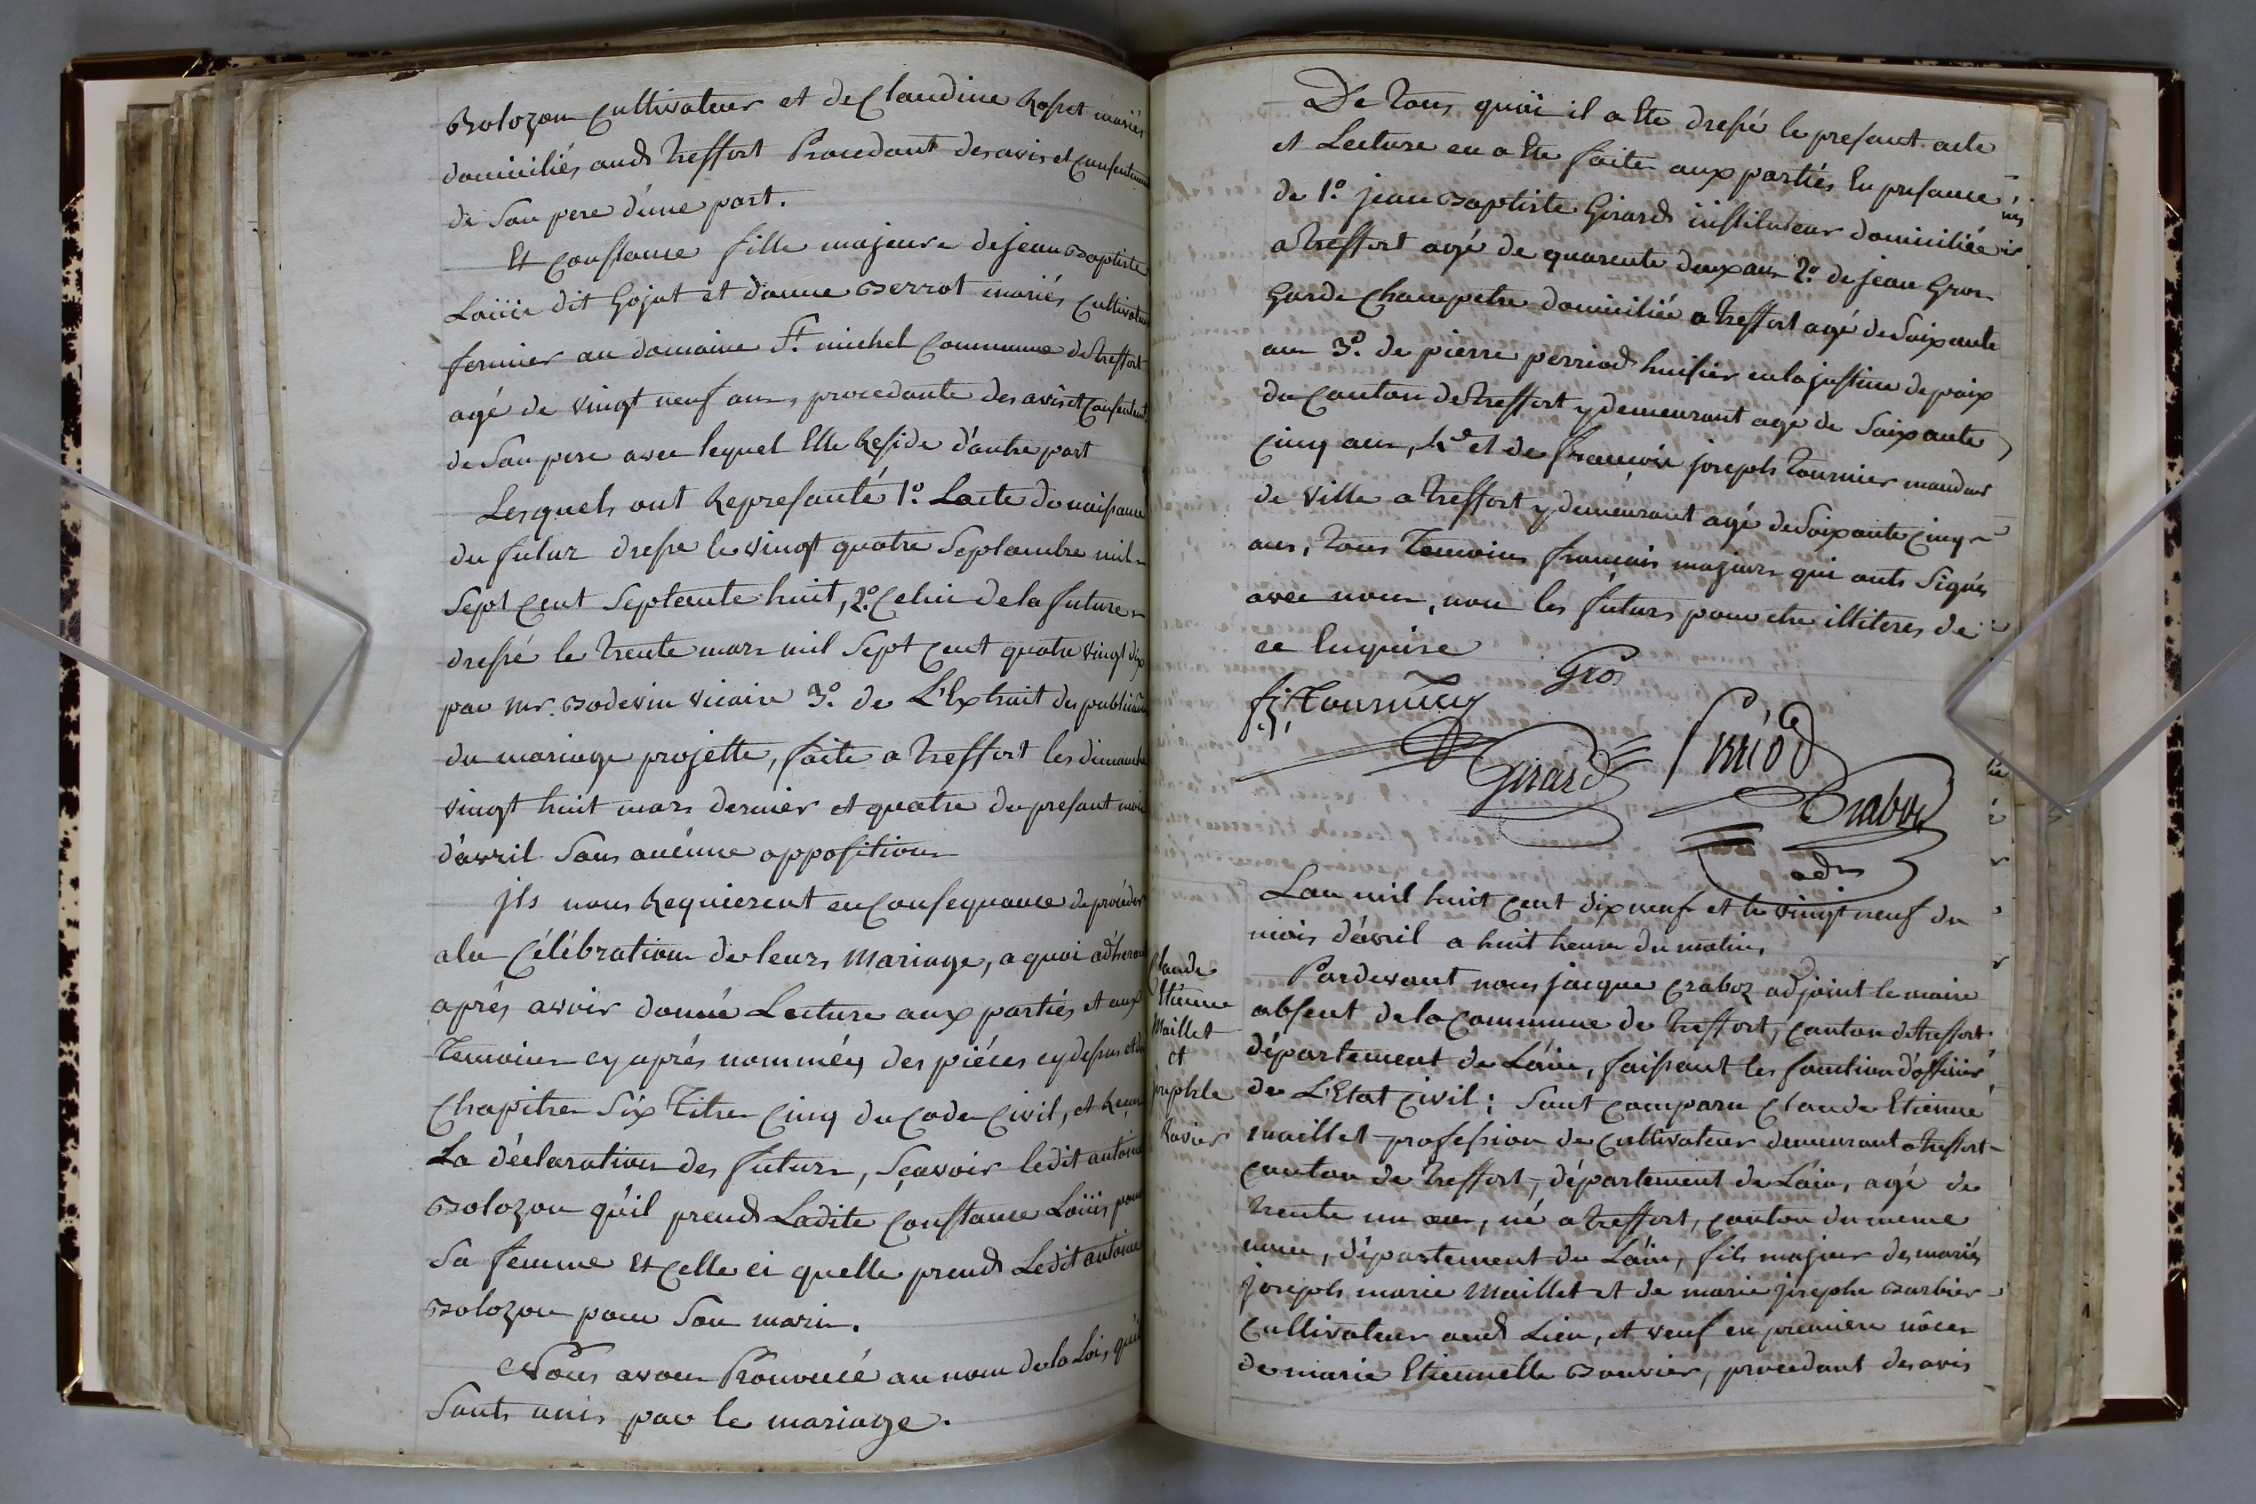 Bolozon Cultivateur et de Claudine Rosset mariés
domiciliés aud. treffort Procedant des avis et Consentement
de Son pere d'une part.
Et Constance fille majeure de jean Baptiste
Loüis dit Gojat et d'anne Berrot mariés Cultivateur
fermier au domaine St. michel Commune de treffort
agé de vingt neuf ans, procedante des avis et Consentemt.
de Son pere avec lequel Elle Reside d'autre part
Lesquels ont Represanté 1.º Lacte de naissance
du futur dressé le vingt quatre Septambre mil
Sept Cent Septante huit, 2.º Celui de la future
dressé le trente mars mil Sept Cent quatre vingt dix
par Mr. Bodevin vicaire 3.º de L'Extrait des publications
du mariage projetté, faite a treffort les dimanche
vingt huit mars dernier et quatre du presant mois
d'avril Sans aucunne opposition
jls nous Requierent en Consequance de procéder
a la Célébration de leurs Mariage, a quoi adherant
aprés avoir donné Lecture aux partiés et aux
Temoins cy aprés nommés, des piéces cy dessus et du
Chapitre Six Titre Cinq du Code Civil, et Reçu
La déclaration des futurs, Sçavoir ledit antoine
Bolozon qu'il prend Ladite Constance Loüis pour
Sa femme Et Celle ci quelle prend Ledit antoine
Bolozon pour Son mari.
Nous avons Prononcé au nom de la Loi, qu'ils
Sonts unis par le mariage.
De tous quoi il a Ete dressé le presant acte
et Lecture en a Ete faite aux partiés En presance
de 1.º jean Baptiste Girard instituteur domiciliée
a treffort agé de quarente deux ans 2.º de jean Gros
Garde Champetre domiciliée a treffort agé de Soixante
ans 3.º de pierre perriod huissier en la justice de paix
du Canton de treffort y demeurant agé de Soixante
Cinq ans, 4.º et de françois joseph Tournier mandeur
de ville a treffort y demeurant agé de Soixante Cinq
ans, tous Temoins français majeurs qui onts Signés
avec nous, non les futurs pour etre illiteres de
ce Enquise
Gros
fj Tournier
Girard
Perriod
Craboz
adt
Lan mil huit Cent dix neuf et le vingt neuf du
mois d'avril a huit heures du matin,
Pardevant nous jacque Craboz adjoint le maire
absent de la Commune de treffort, Canton de treffort
département de L'ain, faissant les fonctions d'officier
de L'Etat Civil: Sont Comparu Claude Etienne
Maillet profession de Cultivateur demeurant a treffort
Canton de treffort, département de L'ain, agé de
trente un ans, né a treffort, Canton du meme
nom, département de L'ain, fils majeur des mariés
joseph marie Maillet et de marie josephe Barbier
Cultivateur aud. Lieu, et veuf en premiere nôces
de marie Etiennette Bouvier, procedant des avis
Claude
Etienne
Maillet
et
josephte
Ravier